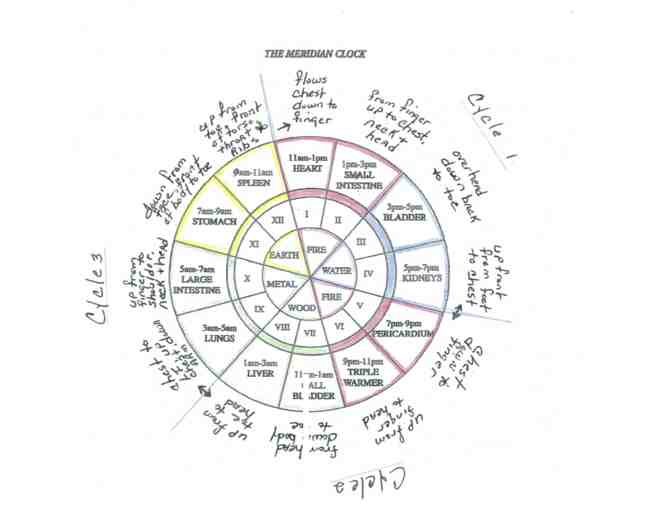 THE MERIDIAN CLOCK
flows
chest
down to
finger
from finger
up to chest,
neck +
head
Cycle 1
overhead
down back
to toe
up front
from foot
to chest
chest
down to
finger
up from
finger
to head
Cycle 2
from head
down body
to
up from
toe to
chest to
Cycle 3
up from
finger to
shoulder,
neck + head
down from
front
of body to toe
up from
toe, front
of torso
throat to
Ribs
11am-1pm
HEART
1pm-3pm
SMALL
INTESTINE
3pm-5pm
BLADDER
5pm-7pm
KIDNEYS
7pm-9pm
PERICARDIUM
9pm-11pm
TRIPLE
WARMER
11 -1am
ALL
BL DDER
1am-3am
LIVER
3am-5am
LUNGS
5am-7am
LARGE
INTESTINE
7am-9am
STOMACH
9am-11am
SPLEEN
I
II
III
IV
V
VI
VII
VIII
IX
X
XI
XII
FIRE
WATER
FIRE
WOOD
METAL
EARTH